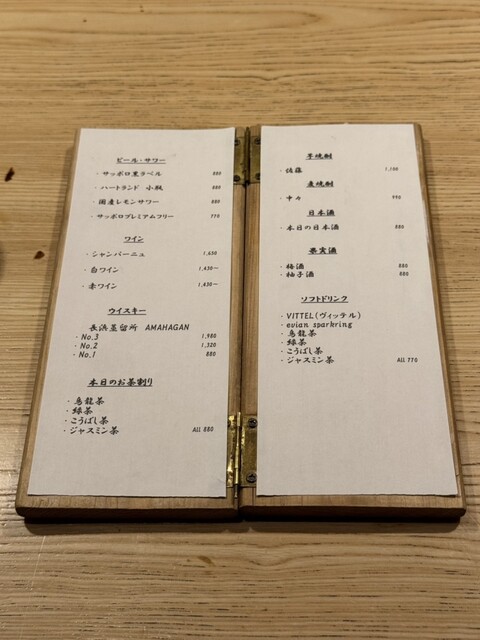 ビール・サワー
・サッポロ黒ラベル 880
・ハートランド 小瓶 880
・国産レモンサワー 880
・サッポロプレミアムフリー 770
ワイン
・シャンパーニュ 1,650
・白ワイン 1,430〜
・赤ワイン 1,430〜
ウイスキー
長浜蒸留所 AMAHAGAN
・No.3 1,980
・No.2 1,320
・No.1 880
本日のお茶割り
・烏龍茶
・緑茶
・こうばし茶
・ジャスミン茶 All 880
芋焼酎
・佐藤 1,100
麦焼酎
・中々 990
日本酒
・本日の日本酒 880
果実酒
・梅酒 880
・柚子酒 880
ソフトドリンク
・VITTEL(ヴィッテル)
・evian sparkring
・烏龍茶
・緑茶
・こうばし茶
・ジャスミン茶 All 770